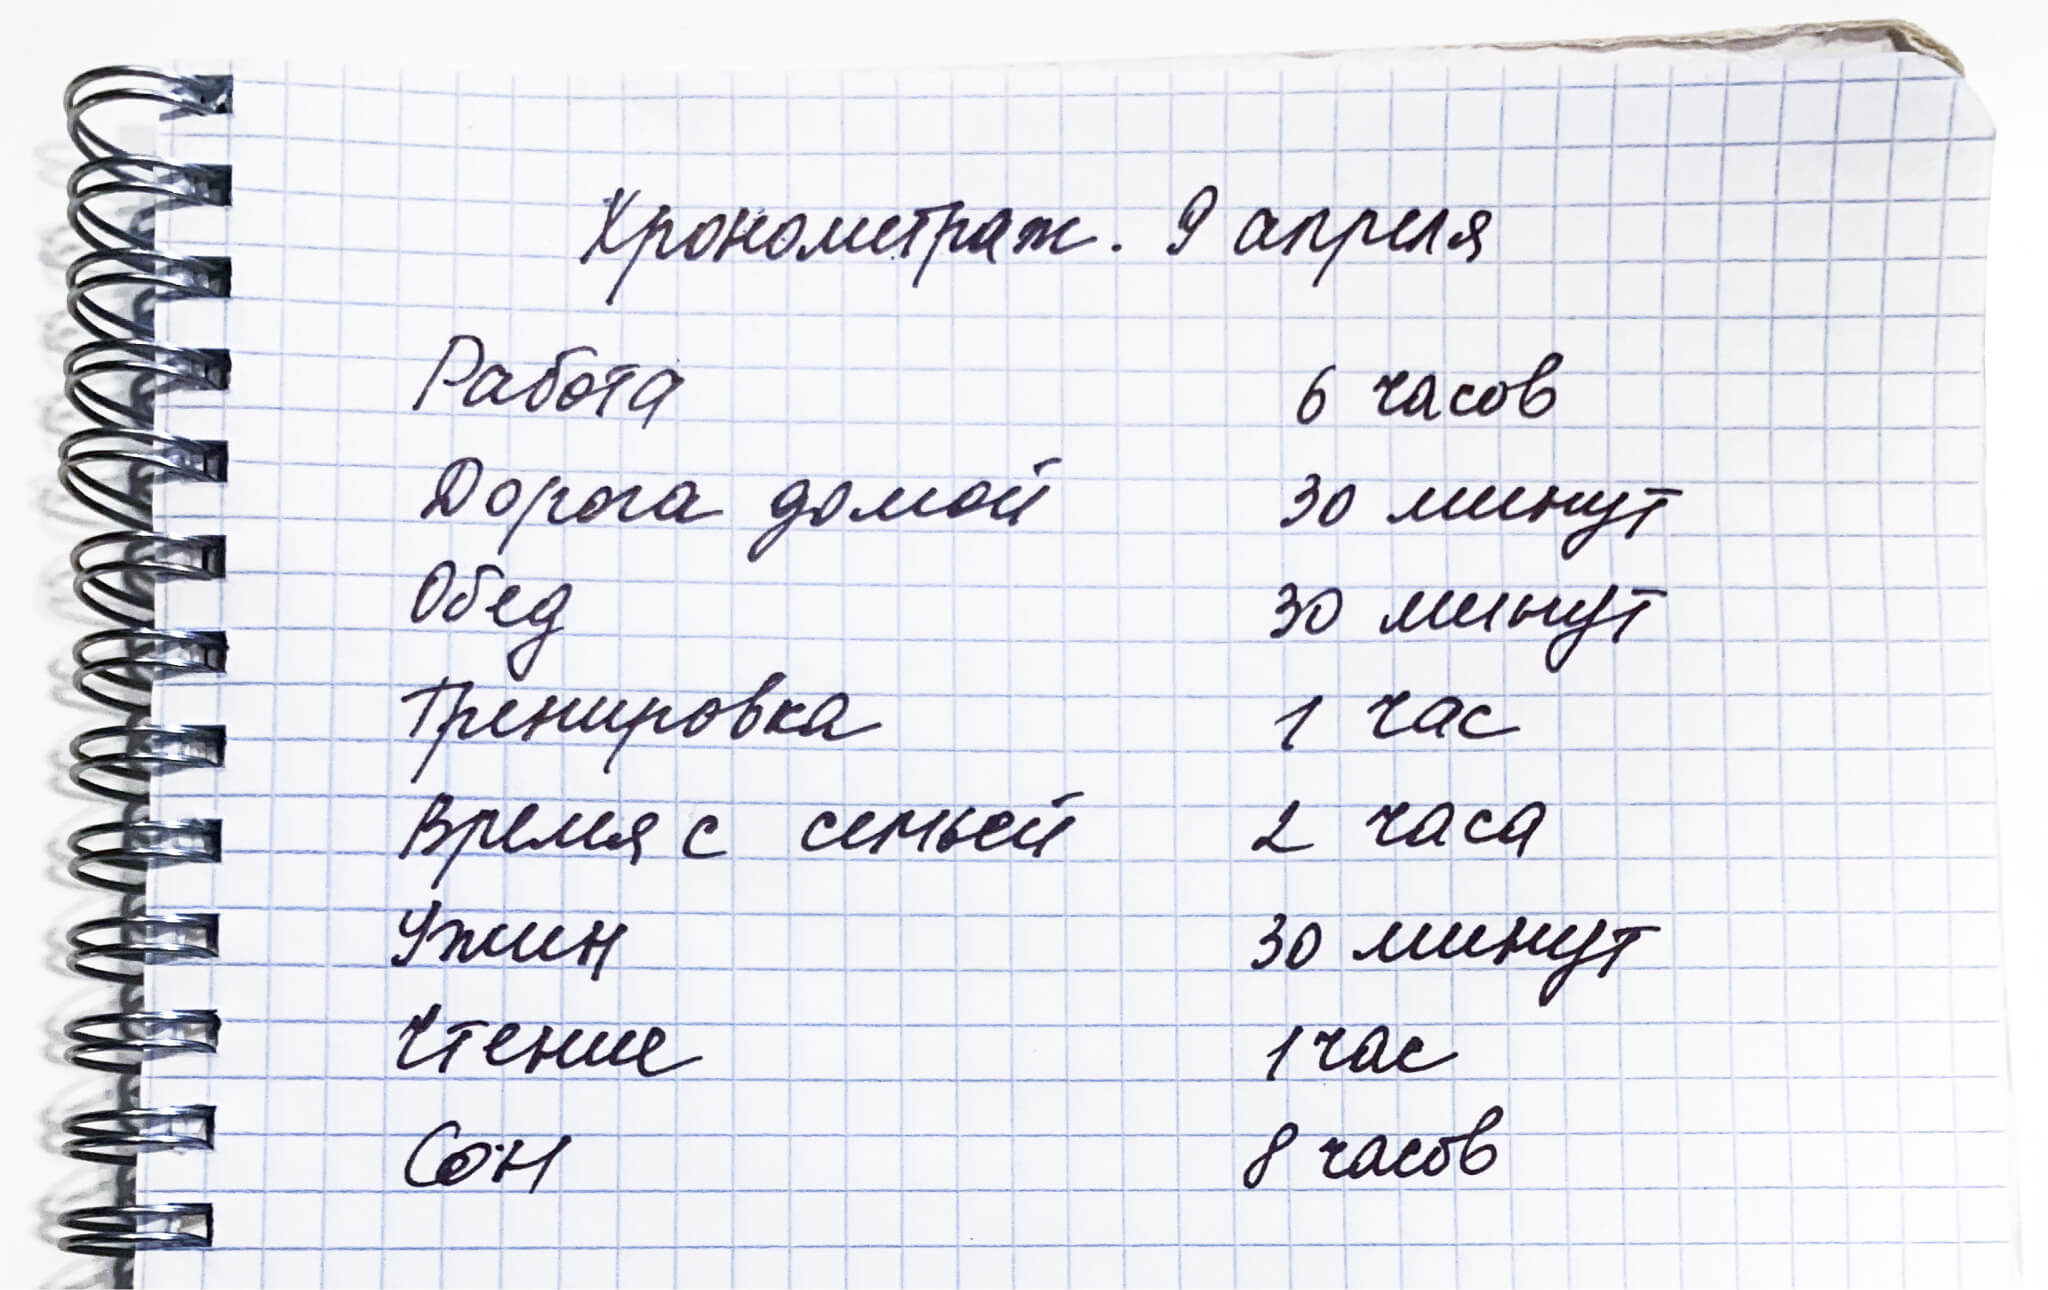 Хронометраж. 9 апреля
Работа 6 часов
Дорога домой 30 минут
Обед 30 минут
Тренировка 1 час
Время с семьей 2 часа
Ужин 30 минут
Чтение 1 час
Сон 8 часов